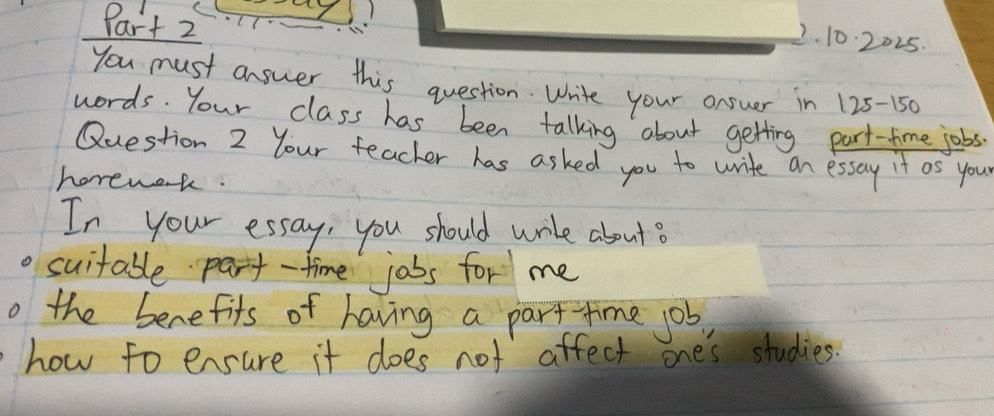 Part 2
2.10.2025.
You must answer this question. Write your answer in 125-150
words. Your class has been talking about getting part-time jobs.
Question 2 Your teacher has asked you to write an essay it as your
homework.
In your essay, you should write about:
• suitable part-time jobs for me
• the benefits of having a part-time job
• how to ensure it does not affect one's studies.